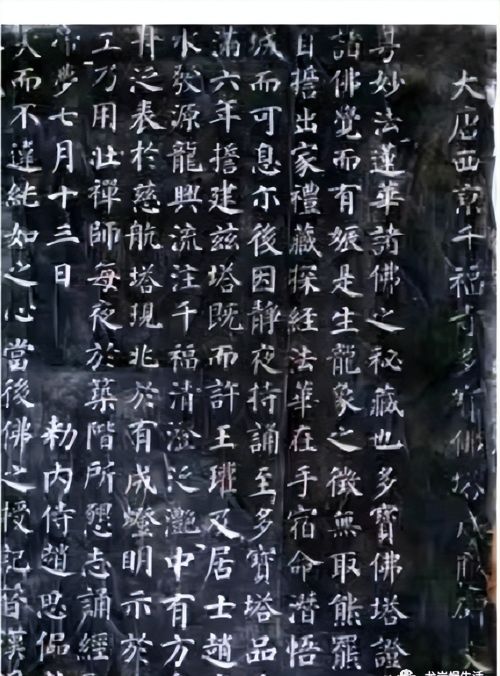 大唐西京千福寺多寶佛塔感應碑文
粵妙法蓮華諸佛之秘藏也多寶佛塔證
諸佛覺而有娠是生龍象之徵無取熊羆
自誓出家禮藏探經法華在手宿命潛悟
城而可息尓後因靜夜持誦至多寶塔品
滿六年誓建茲塔既而許王瓘及居士趙
水發源龍興流注千福清澄泛灩中有方
舟泛表於慈航塔現兆於有成燈明示於
工乃用壯禪師每夜於築階所懇志誦經
帝夢七月十三日 勑内侍趙思偘
大而不達能如之心當後佛之授記昔漢